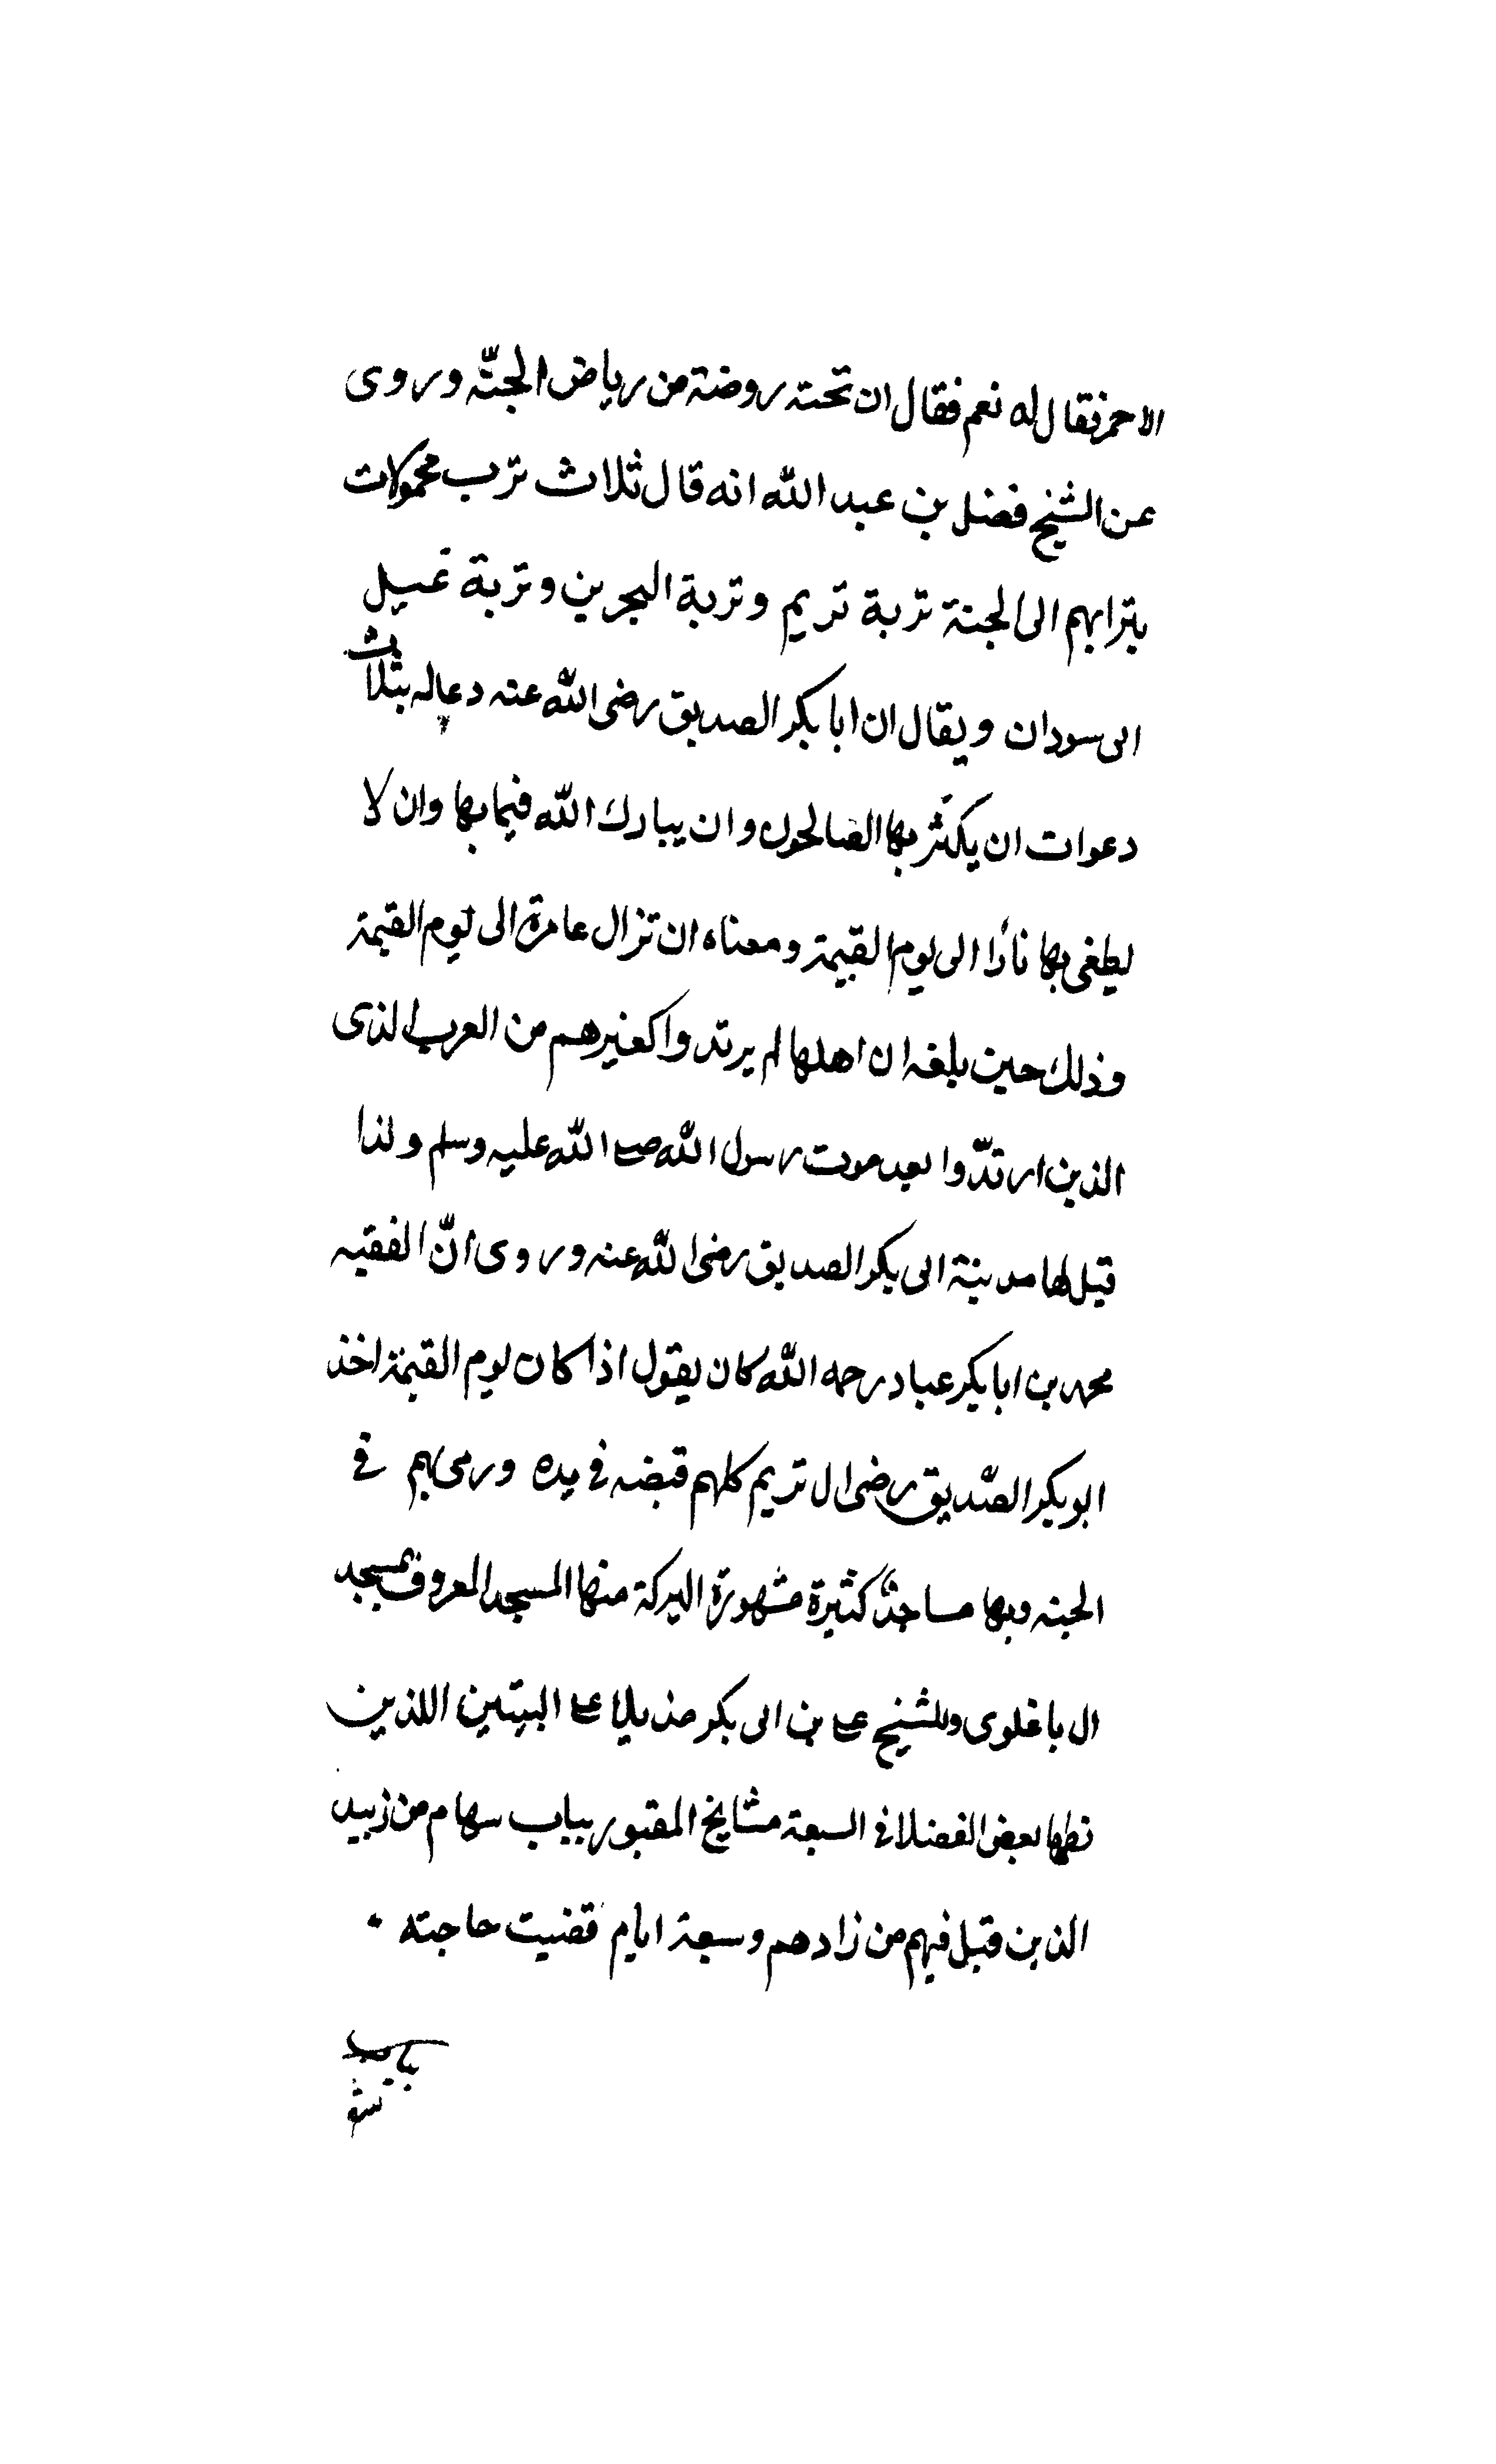 الاحمر فقال له نعم فقال ان تحته روضة من رياض الجنّه وروى
عن الشيخ فضل بن عبد الله انه قال ثلاث ترب محمولات
بترابهم الى الجنة تربة تريم وتربة البحرين وتربة غيل
ابى سودان ويقال ان ابا بكر الصديق رضى الله عنه دعا له بثلاث
دعوات ان يكثر بها الصالحون وان يبارك الله فيما بها وان لا
يطغى بها نارًا الى يوم القيمة ومعناه ان تزال عامرة الى يوم القيمة
وذلك حين بلغه ان اهلها لم يرتدوا كغيرهم من العرب الذى
الذين ارتدّوا بعد موت رسول الله صلى الله عليه وسلم ولذا
قيل لها مدينة ابى بكر الصديق رضى الله عنه وروى انّ الفقيه
محمد بن ابا بكر عباد رحمه الله كان يقول اذا كان يوم القيمة اخذ
ابو بكر الصّديق رضى ال تريم كلهم قبضه في يده ورمى بهم في
الجنه وبها مساجدٌ كثيرة مشهورة البركة منها المسجد المعروف بمسجد
ال با علوى وللشيخ على بن ابى بكر مذيلا على البيتين اللذين
نظمها بعض الفضلا في السبعة مشايخ المقبور بباب سهام من زبيد
الذين قبل فيهم من زادهم وسبعة ايام قضيت حاجته